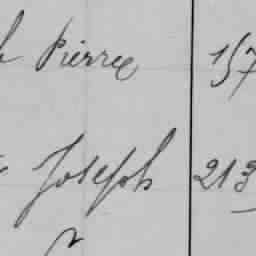 Pierre 157
Joseph 213